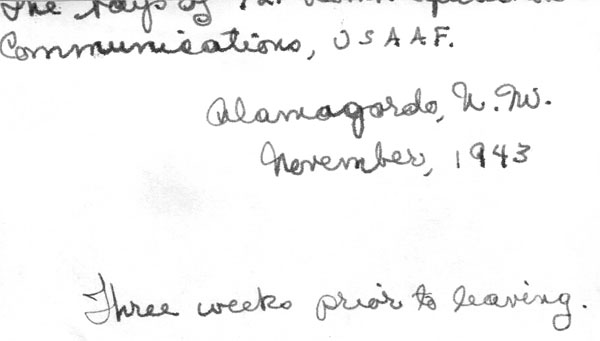 The
of
Communications, USAAF.
Alamagordo, N. M.
November, 1943
Three weeks prior to leaving.